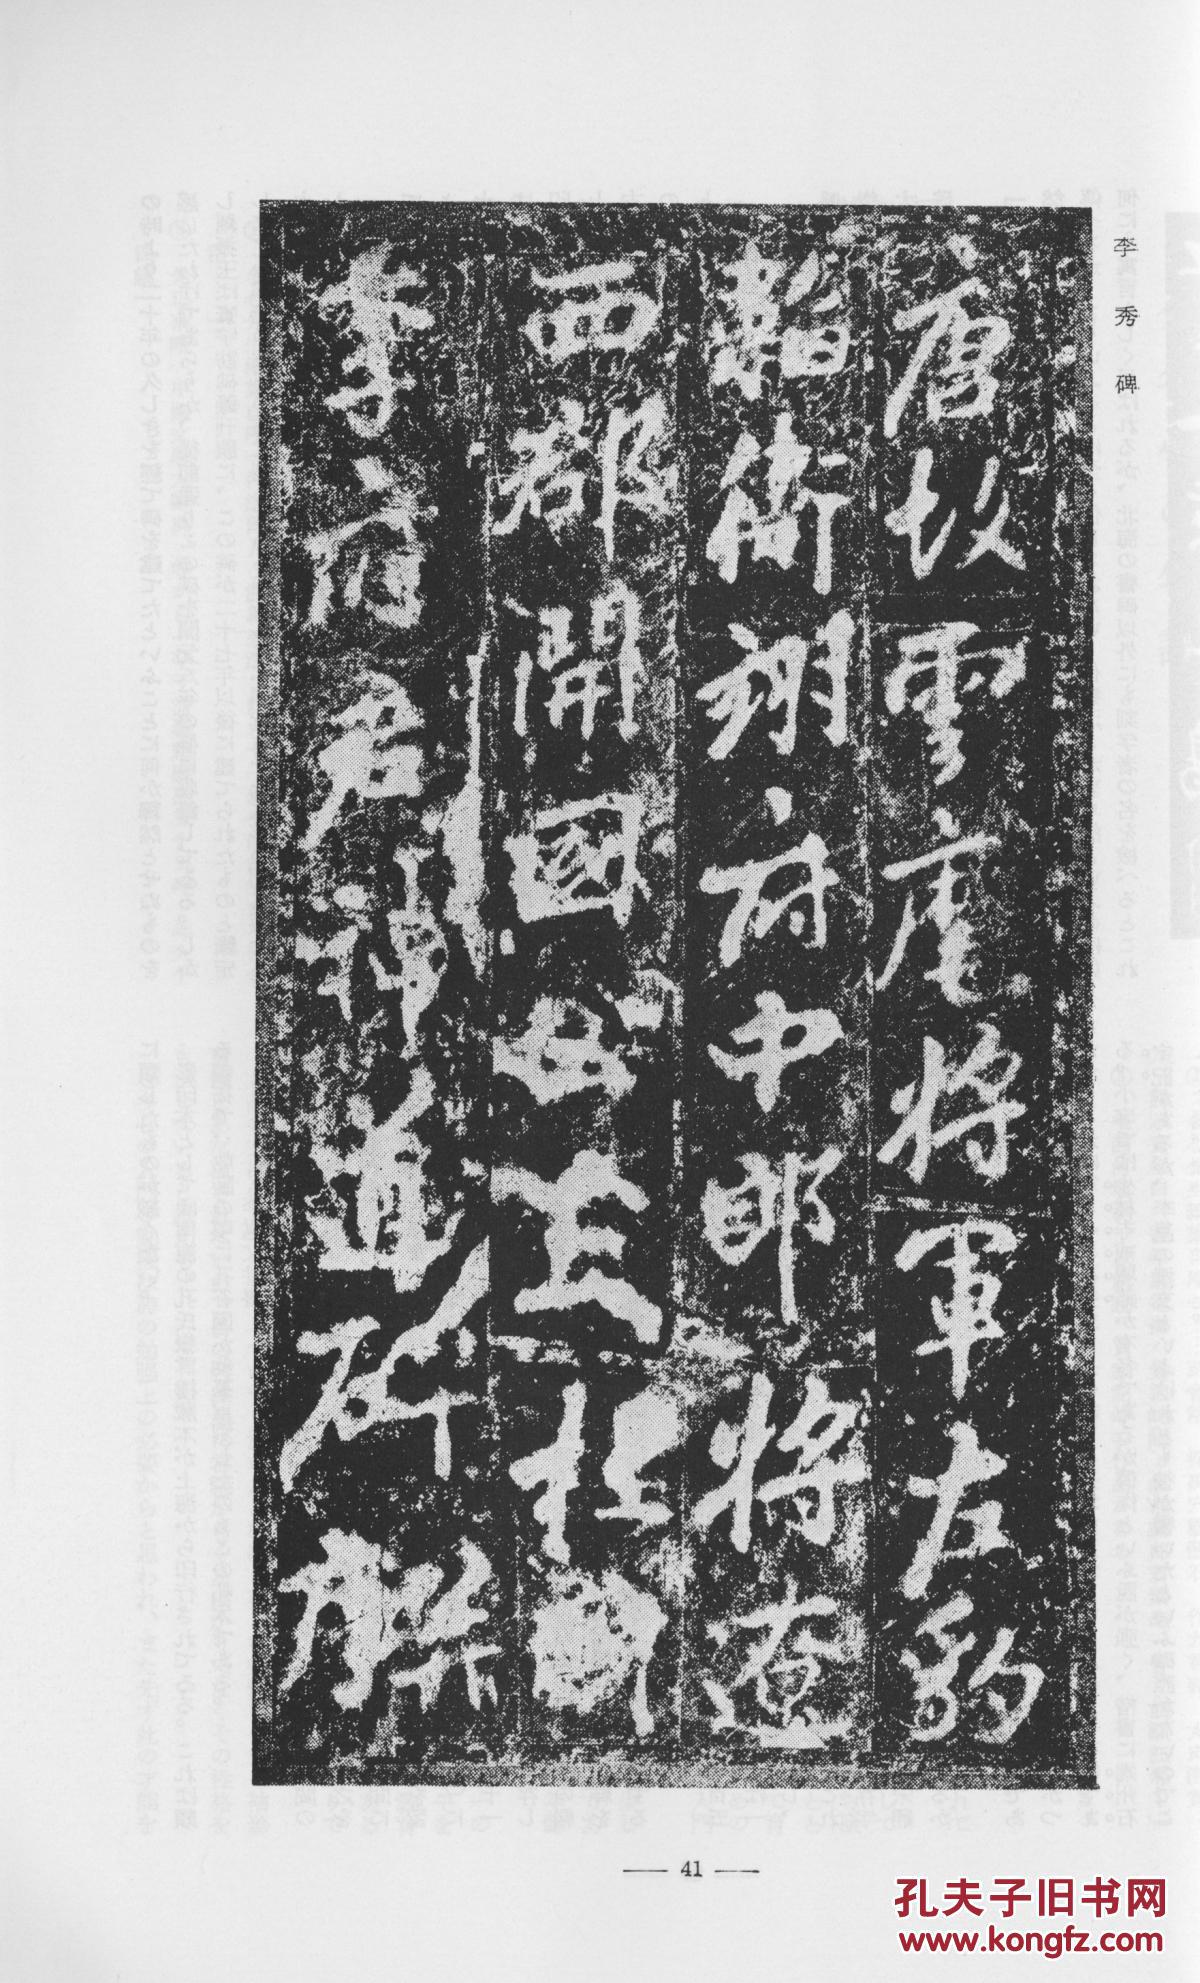 李秀碑
唐故雲麾將軍左豹
韜衛翊府中郎將遼
西郡開國公上柱國
李府君神道碑并序
— 41 —
孔夫子旧书网
www.kongfz.com